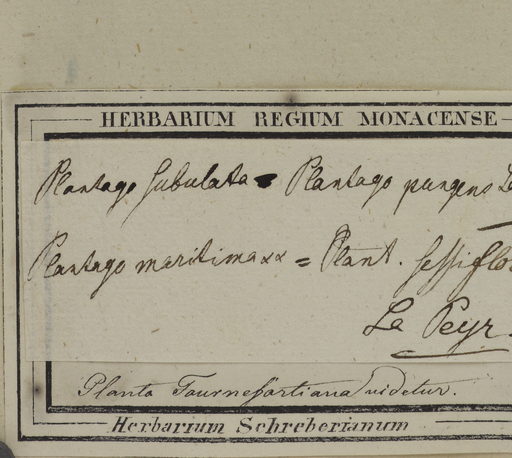 HERBARIUM REGIUM MONACENSE
Plantago subulata = Plantago pungens La
Plantago maritima αα = Plant. sessiflo
La Peyr.
Planta Tournefortiana videtur.
Herbarium Schreberianum